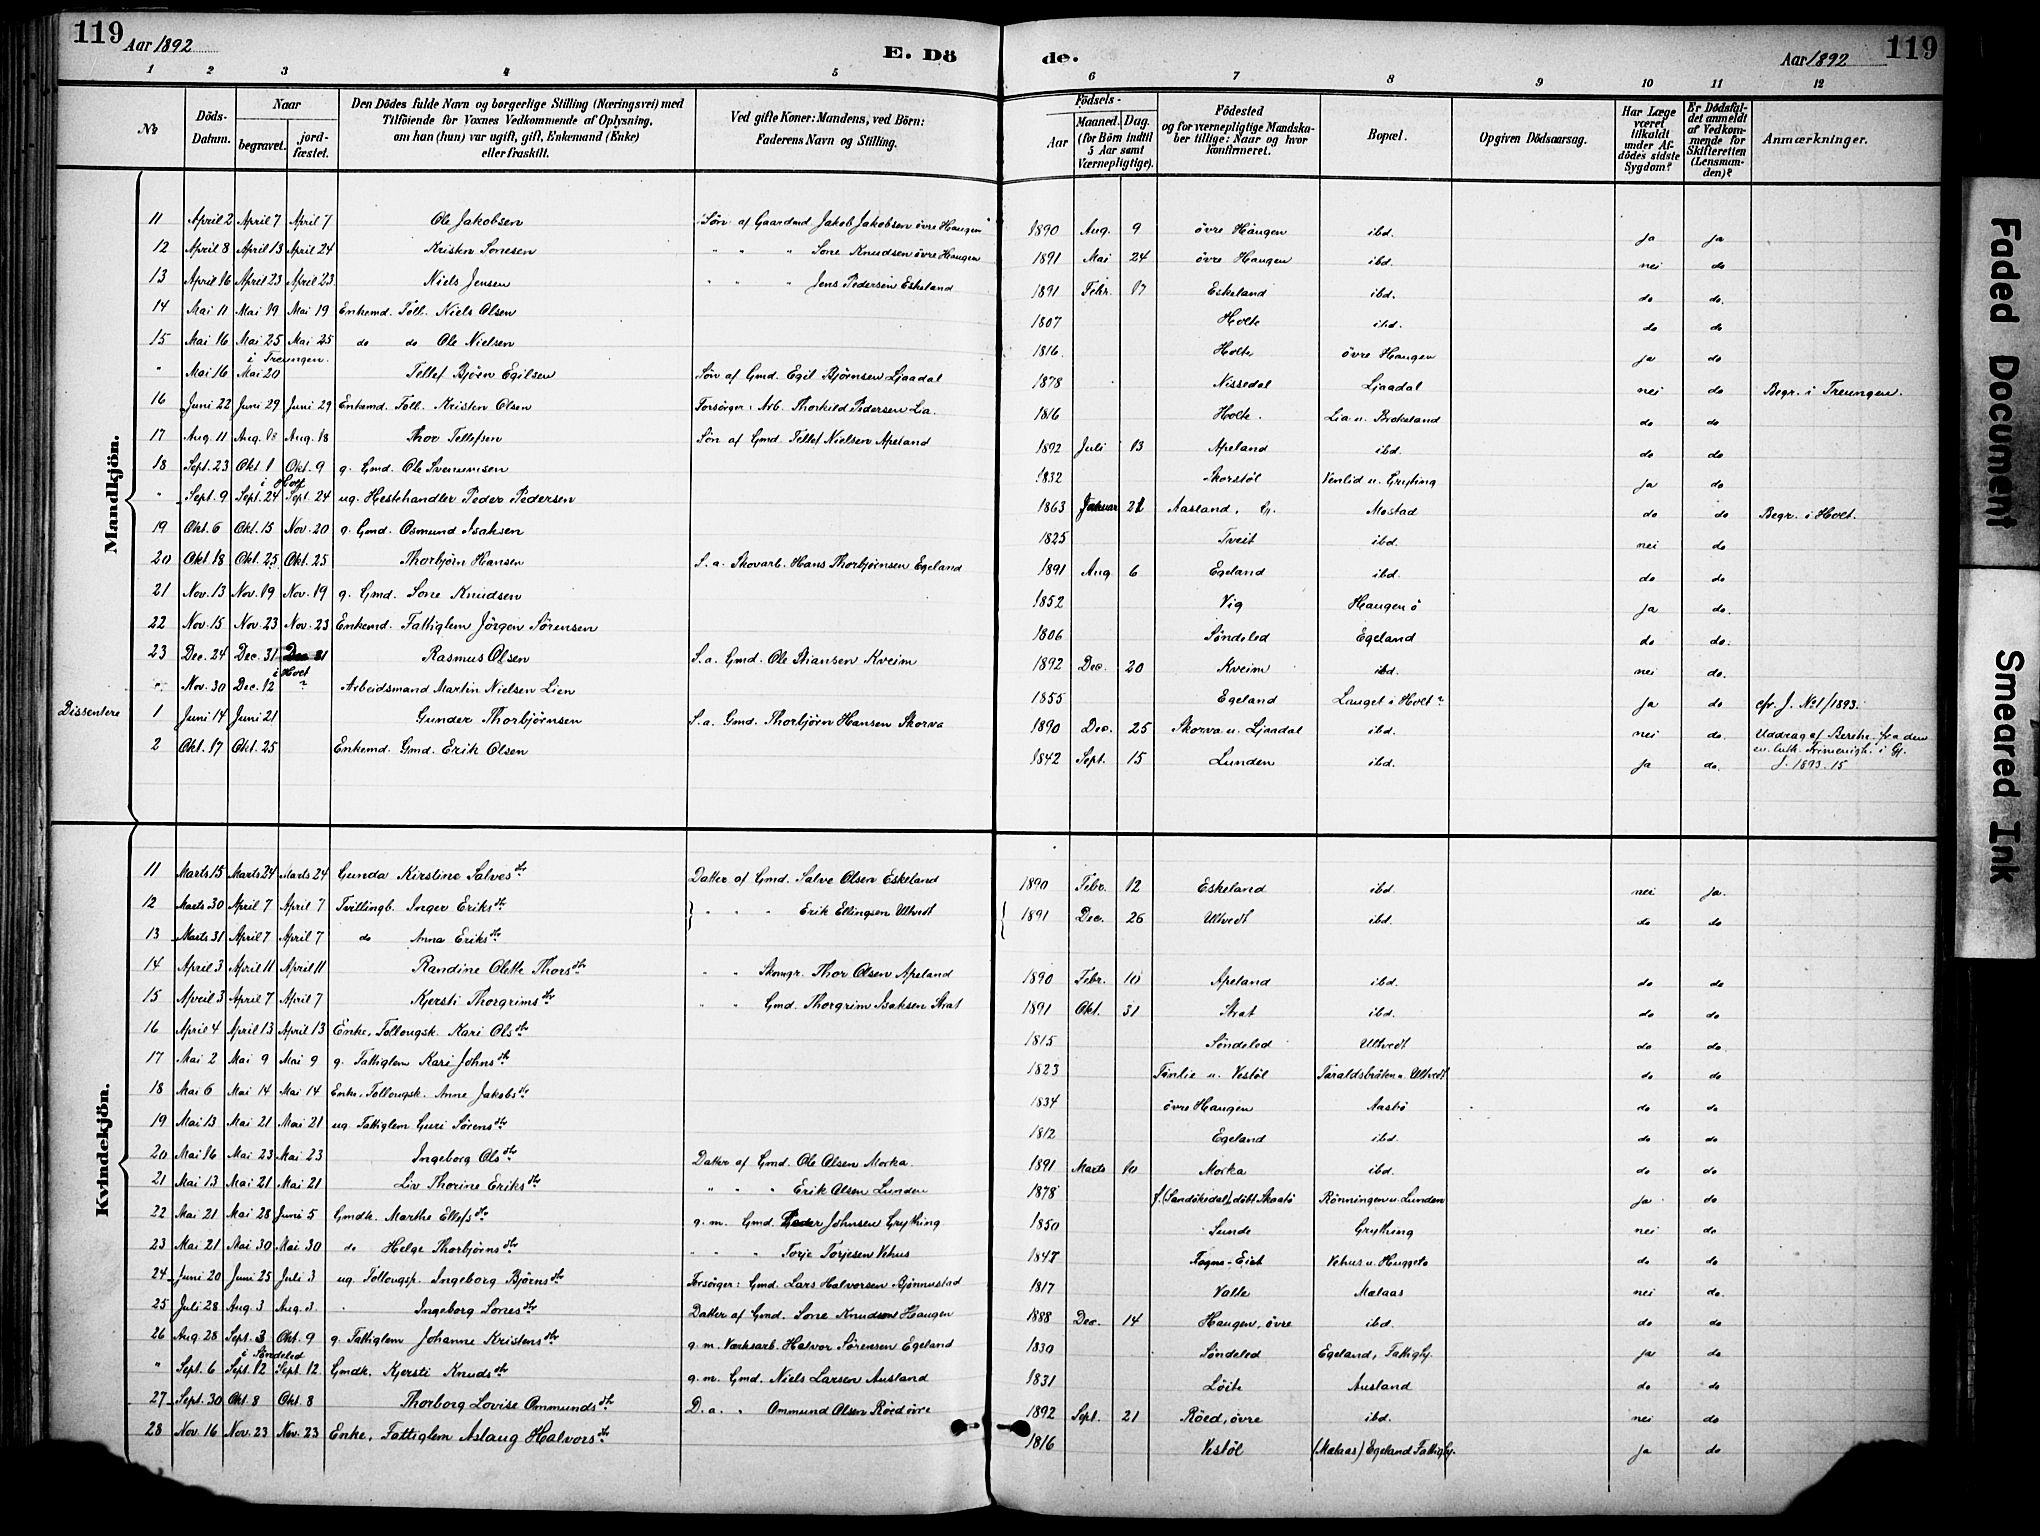 119 Aar 1892 E. Dö
de. Aar 1892 119
1 2 3 4 5
6 7 8 9 10 11 12
No
Döds-Datum.
Naar
begravet.
jord-fæstet.
Den Dödes fulde Navn og borgerlige Stilling (Næringsvei) med
Tilföiende for Voxnes Vedkommende af Oplysning,
om han (hun) var ugift, gift, Enkemand (Enke)
eller fraskilt.
Ved gifte Koner: Mandens, ved Börn:
Faderens Navn og Stilling.
Födsels-
Aar
Maaned. Dag.
(for Börn indtil
5 Aar samt
Værnepligtige).
Födested
og for værnepligtige Mandska-
ber tillige: Naar og hvor
konfirmeret.
Bopæl.
Opgiven Dödsaarsag.
Har Læge
været
tilkaldt
under Af-
dödes sidste
Sygdom?
Er Dödsfal-
det anmeldt
af Vedkom-
mende for
Skifteretten
(Lensman-
den)?
Anmærkninger.
Mandkjön.
11 April 2 April 7 April 7 Ole Jakobsen Sön af Gaardmd Jakob Jakobsen övre Haugen 1890 Aug. 9 övre Haugen ibd. ja ja
12 April 8 April 13 April 24 Kristen Sonesen " " " Sone Knudsen övre Haugen 1891 Mai 24 övre Haugen ibd. nei do
13 April 16 April 23 April 23 Niels Jensen " " " Jens Pedersen Eskeland 1891 Febr. 17 Eskeland ibd. do do.
14 Mai 11 Mai 19 Mai 19 Enkemd. Föll. Niels Olsen 1807 Holte ibd. do do
15 Mai 16 Mai 25 Mai 25 do do Ole Nielsen 1816 Holte övre Haugen ja do
i Treungen.
" Mai 16 Mai 20 Tellef Björn Egilsen Sön af Gmd. Egil Björnsen Ljaadal 1878 Nissedal Ljaadal nei do Begr. i Treungen.
16 Juni 22 Juni 29 Juni 29 Enkemd. Föll. Kristen Olsen Forsörger: Arb. Thorkild Pedersen Lia. 1816 Holte. Lia u. Brokeland do do
17 Aug. 11 Aug. 18 Aug. 18 Thor Tellefsen Sön af Gmd. Tellef Nielsen Apeland 1892 Juli 13 Apeland ibd. do do
18 Sept. 23 Okt. 1 Okt. 9 g. Gmd. Ole Svenumsen 1832 Skorstöl Venlid u. Gryting ja do
i Holt
" Sept. 9 Sept. 24 Sept. 24 ug. Hestehandler Peder Pedersen 1863 Januar 21 Aasland, Gj. Mostad do do Begr. i Holt.
19 Okt. 6 Okt. 15 Nov. 20 g. Gmd. Osmund Isaksen 1825 Tveit ibd. nei do
20 Okt 18 Okt. 25 Okt. 25 Thorbjörn Hansen S. a. Skovarb. Hans Thorbjörnsen Egeland 1891 Aug 6 Egeland ibd. do do
21 Nov. 13 Nov. 19 Nov. 19 g. Gmd. Sone Knudsen 1852 Vig Haugen ö ja do.
22 Nov. 15 Nov. 23 Nov. 23 Enkemd. Fattiglem Jörgen Sörensen 1806 Söndeled Egeland do do.
23 Dec. 24 Dec. 31 Dec 31 Rasmus Olsen S. a. Gmd. Ole Stiansen Kveim 1892 Dec. 20 Kveim ibd. nei do.
i Holt
" Nov. 30 Dec. 12 ? Arbeidsmand Martin Nielsen Lien 1855 Egeland Lauget i Holt? ja do cfr. J. No 1/1893.
Dissentere 1 Juni 14 Juni 21 Gunder Thorbjörnsen S. a. Gmd. Thorbjörn Hansen Skorva 1890 Dec. 25 Skorva u. Ljaadal ibd. nei do. Uddrag af Beretn. fra den
2 Okt. 17 Okt. 25 Enkemd. Gmd. Erik Olsen 1842 Sept. 15 Lunden ibd. ja do. ev. luth. Frimenigh. i Gj.
J. 1893. 15
Kvindekjön.
11 Marts 15 Marts 24 Marts 24 Gunda Kirstine Salvesdtr Datter af Gmd. Salve Olsen Eskeland 1890 Febr. 12 Eskeland ibd. nei ja.
12 Marts 30 April 7 April 7 Tvillingb. Inger Eriksdtr " " " Erik Ellingsen Ultvedt 1891 Dec. 26 Ultvedt ibd. do do
13 Marts 31 April 7 April 7 do Anna Eriksdtr
14 April 3 April 11 April 11 Randine Olette Thorsdtr " " Skomgr. Thor Olsen Apeland 1890 Febr. 10 Apeland ibd. do do
15 April 3 April 7 April 7 Kjersti Thorgrimsdtr " " Gmd. Thorgrim Isaksen Strat 1891 Okt. 31 Strat ibd. do do
16 April 4 April 13 April 13 Enke, Föllougsk. Kari Olsdtr 1815 Söndeled Ultvedt do do.
17 Mai 2 Mai 9 Mai 9 g. Fattiglem Kari Johnsdtr 1823 Tånlie u. Vestöl Taraldsbråten u. Ultvedt do do
18 Mai 6 Mai 14 Mai 14 Enke, Föllougsk. Anne Jakobsdtr 1834 övre Haugen Aasbö do do
19 Mai 13 Mai 21 Mai 21 ug. Fattiglem Guri Sörensdtr 1812 Egeland ibd. do do
20 Mai 16 Mai 23 Mai 23 Ingeborg Olsdtr Datter af Gmd. Ole Olsen Morka. 1891 Marts 10 Morka ibd. do do
21 Mai 13 Mai 21 Mai 21 Liv Thorine Eriksdtr " " " Erik Olsen Lunden 1878 f. (Sandökedal), döbt Skaatö Rönningen u. Lunden ja do
22 Mai 21 Mai 28 Juni 5 Gmdk. Marthe Ellefsdtr g. m. Gmd. Peder Johnsen Grything 1850 Sunde Grything nei do
23 Mai 21 Mai 30 Mai 30 do Helge Thorbjörnsdtr " " " Torje Torjesen Vehus 1847 Vehus u. Huggeto do do
24 Juni 20 Juni 25 Juli 3 ug. Föllougsp. Ingeborg Björnsdtr Forsörger: Gmd. Lars Halvorsen Bjönnustad 1817 Valle Malaas nei do.
25 Juli 28 Aug. 3 Aug. 3 Ingeborg Sonesdtr Datter af Gmd. Sone Knudsen Haugen 1888 Dec. 14 Haugen, övre ibd. do do
26 Aug. 28 Sept. 3 Okt. 9 g. Fattiglem Johanne Kristensdtr g. m. Værksarb. Halvor Sörensen Egeland 1830 Söndeled Egeland, Fattigbg. ja do
i Söndeled
" Sept. 6 Sept. 12 Sept. 12 Gmdk. Kjersti Knudsdtr g. m. Gmd. Niels Larsen Ausland 1831 Löite Ausland do do
27 Sept. 30 Okt. 8 Okt. 8 Thorborg Lovise Ommundsdtr D. a. " Ommund Olsen Röed övre 1892 Sept. 21 Röed, övre ibd. nei do
28 Nov. 16 Nov. 23 Nov. 23 Enke, Fattiglem Aslaug Halvorsdtr 1816 Vestöl (Malaas) Egeland Fattigbg. ja do
Faded Document
Smeared Ink